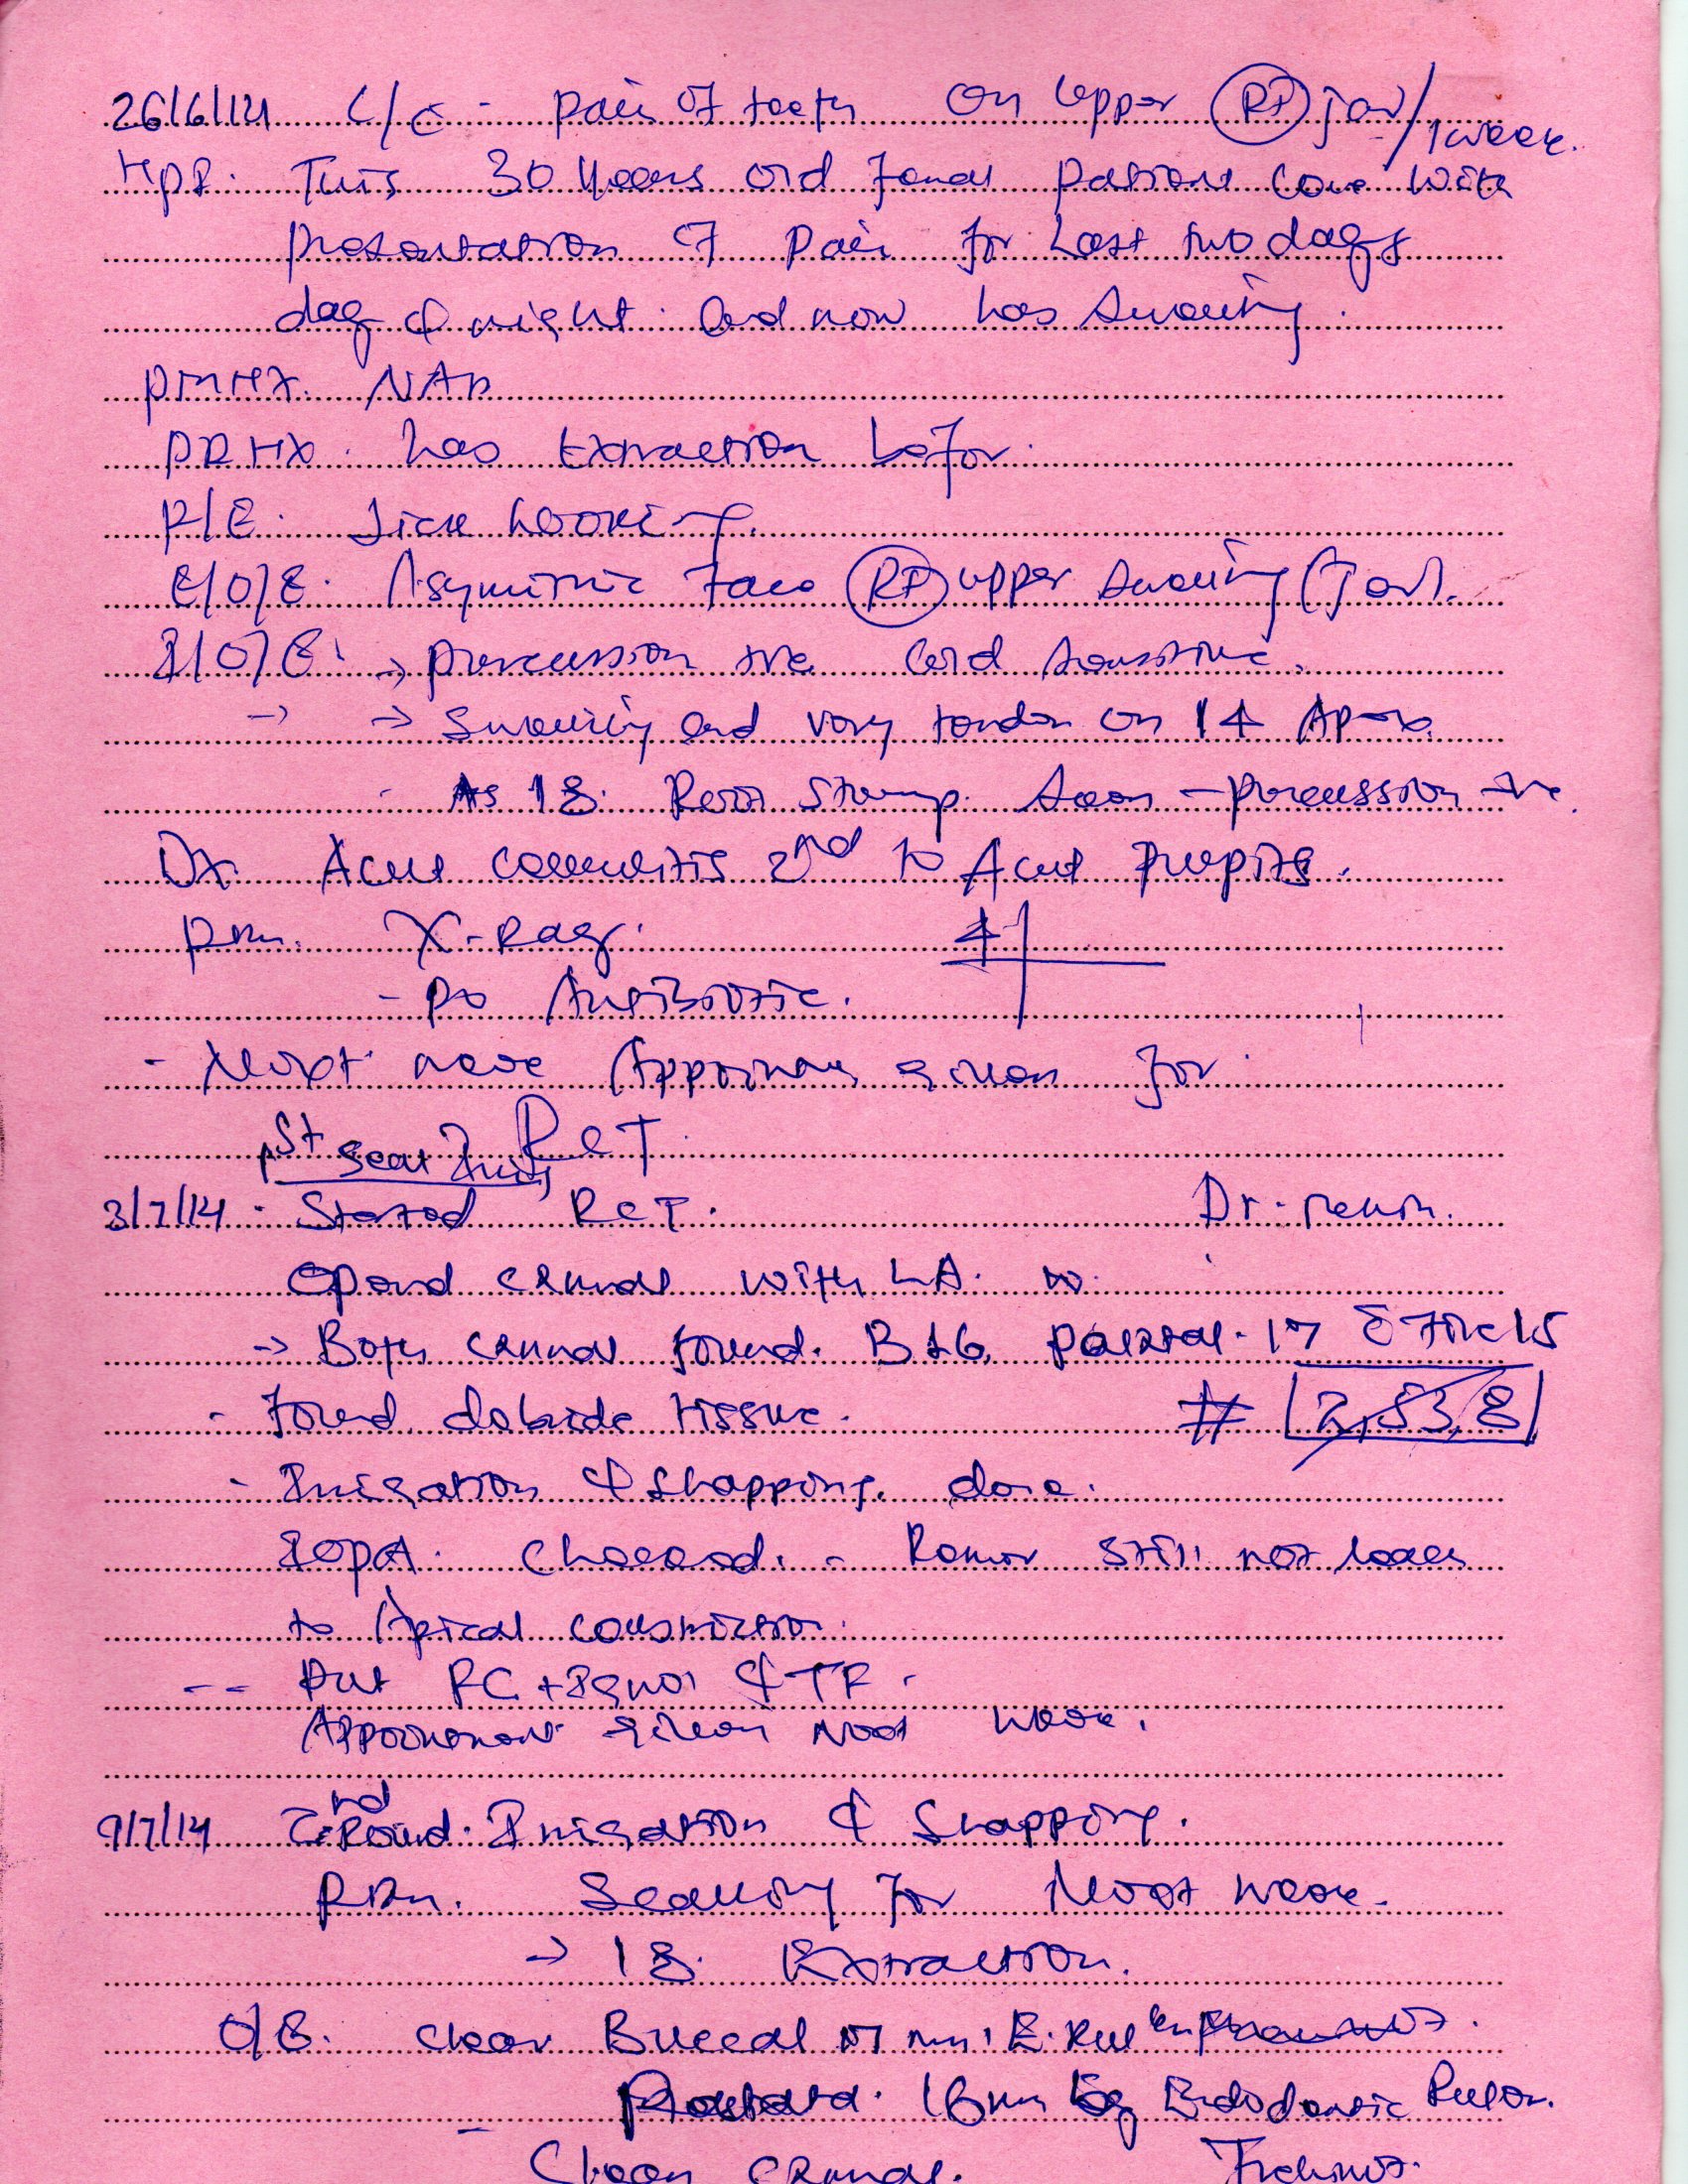 26/6/14 C/C - pain of teeth on upper RT jaw/1week.
HPI. This 30 years old female patient come with
presentation of pain for last two days
day & night. and now has swelling.
PMHX. NAD
PDHX. has Extraction befor.
P/E. Sick looking.
E/O/E. Asymitric face RT upper swelling (Jaw).
I/O/E: → percussion +ve cold sensitive.
→ → Swelling and very tender on 14 Apex.
- As 18. Root stump seen - percussion -ve.
Dx. Acute cellulitis 2nd to Acute pulpitis.
X-Ray. 4
- po Antibiotic.
- Next week Appointment given for
RCT.
1st
3/7/14 - Started RCT. Dr.
Opend cannal with LA.
→ Both cannal found. B 16, palatal - 17 file 15
- found debride tissue. #
- Irrigation & shapping. done.
IOPA. Checked. - still not
to Apical constriction.
-- Put & TF.
Appointment given next week.
9/7/14 2nd Round. Irrigation & Shapping.
Scalling for Next week.
→ 18. Extraction.
O/E. clear Buccal 17 mm.
16mm by Endodontic Ruler.
- Clean cannal.